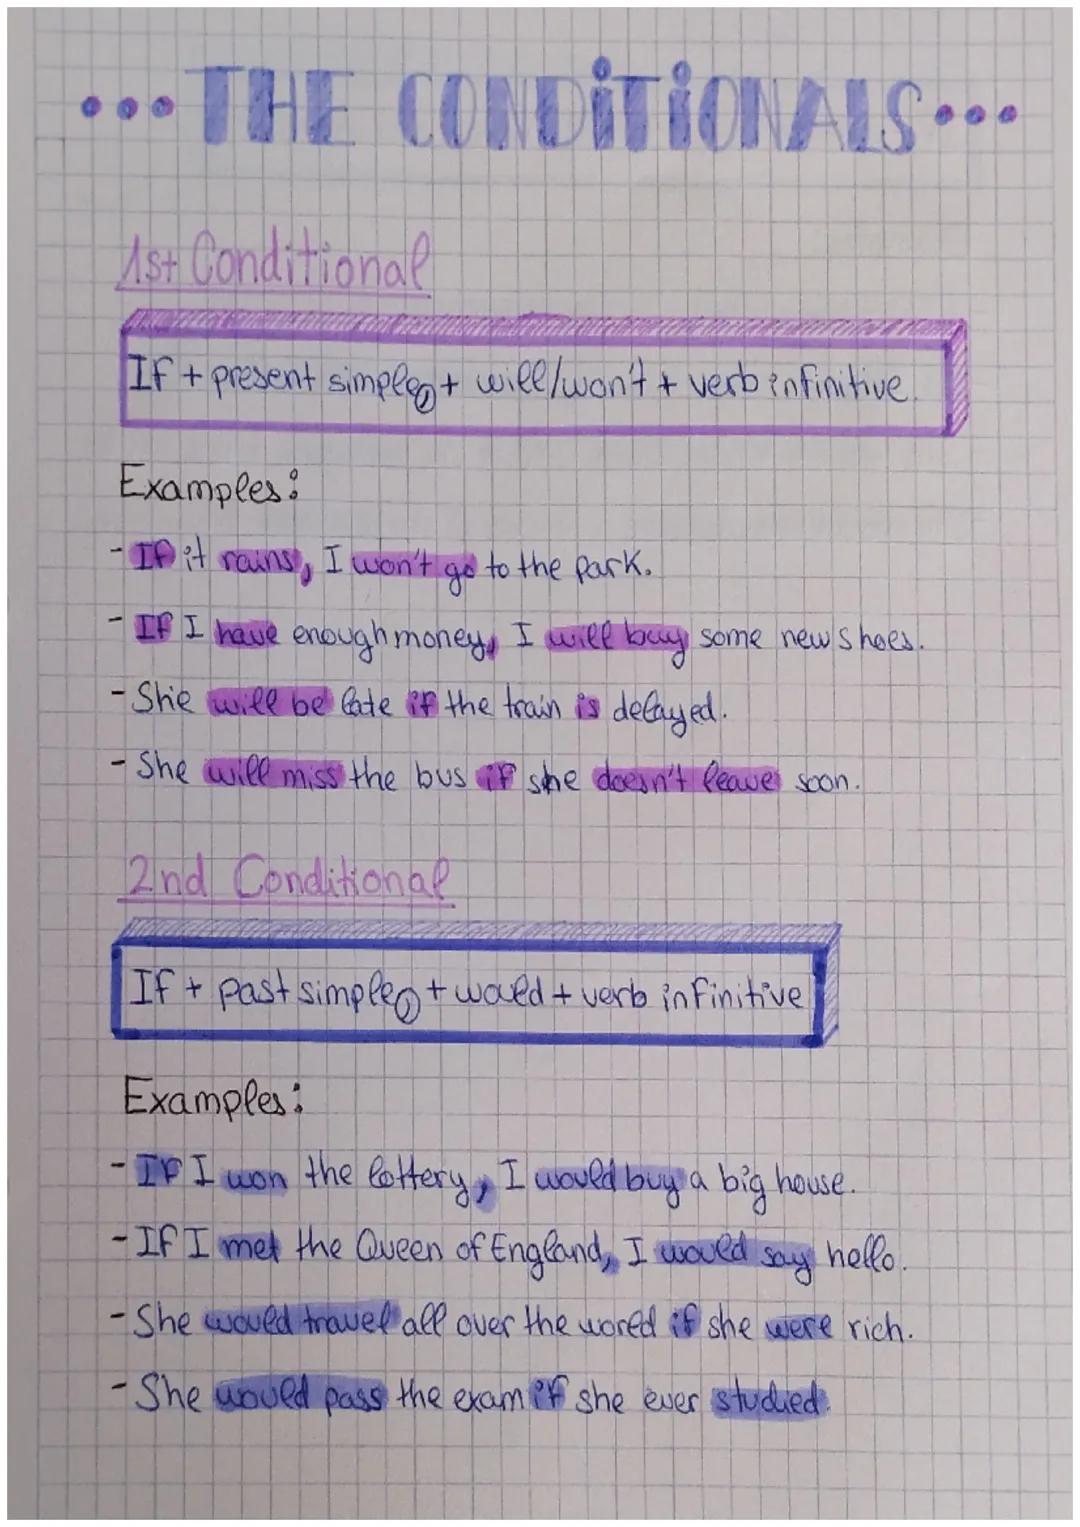 THE CONDITIONALS
1st Conditional
If + present simple, + will/won't + verb infinitive.
Examples:
- If it rains, I won't go to the park.
- If I have enough money, I will buy some new shoes.
- She will be late if the train is delayed.
- She will miss the bus if she doesn't leave soon.
2nd Conditional
If + past simple, + would + verb infinitive
Examples:
- If I won the lottery, I would buy a big house.
- If I met the Queen of England, I would say hello.
- She would travel all over the world if she were rich.
- She would pass the exam if she ever studied.